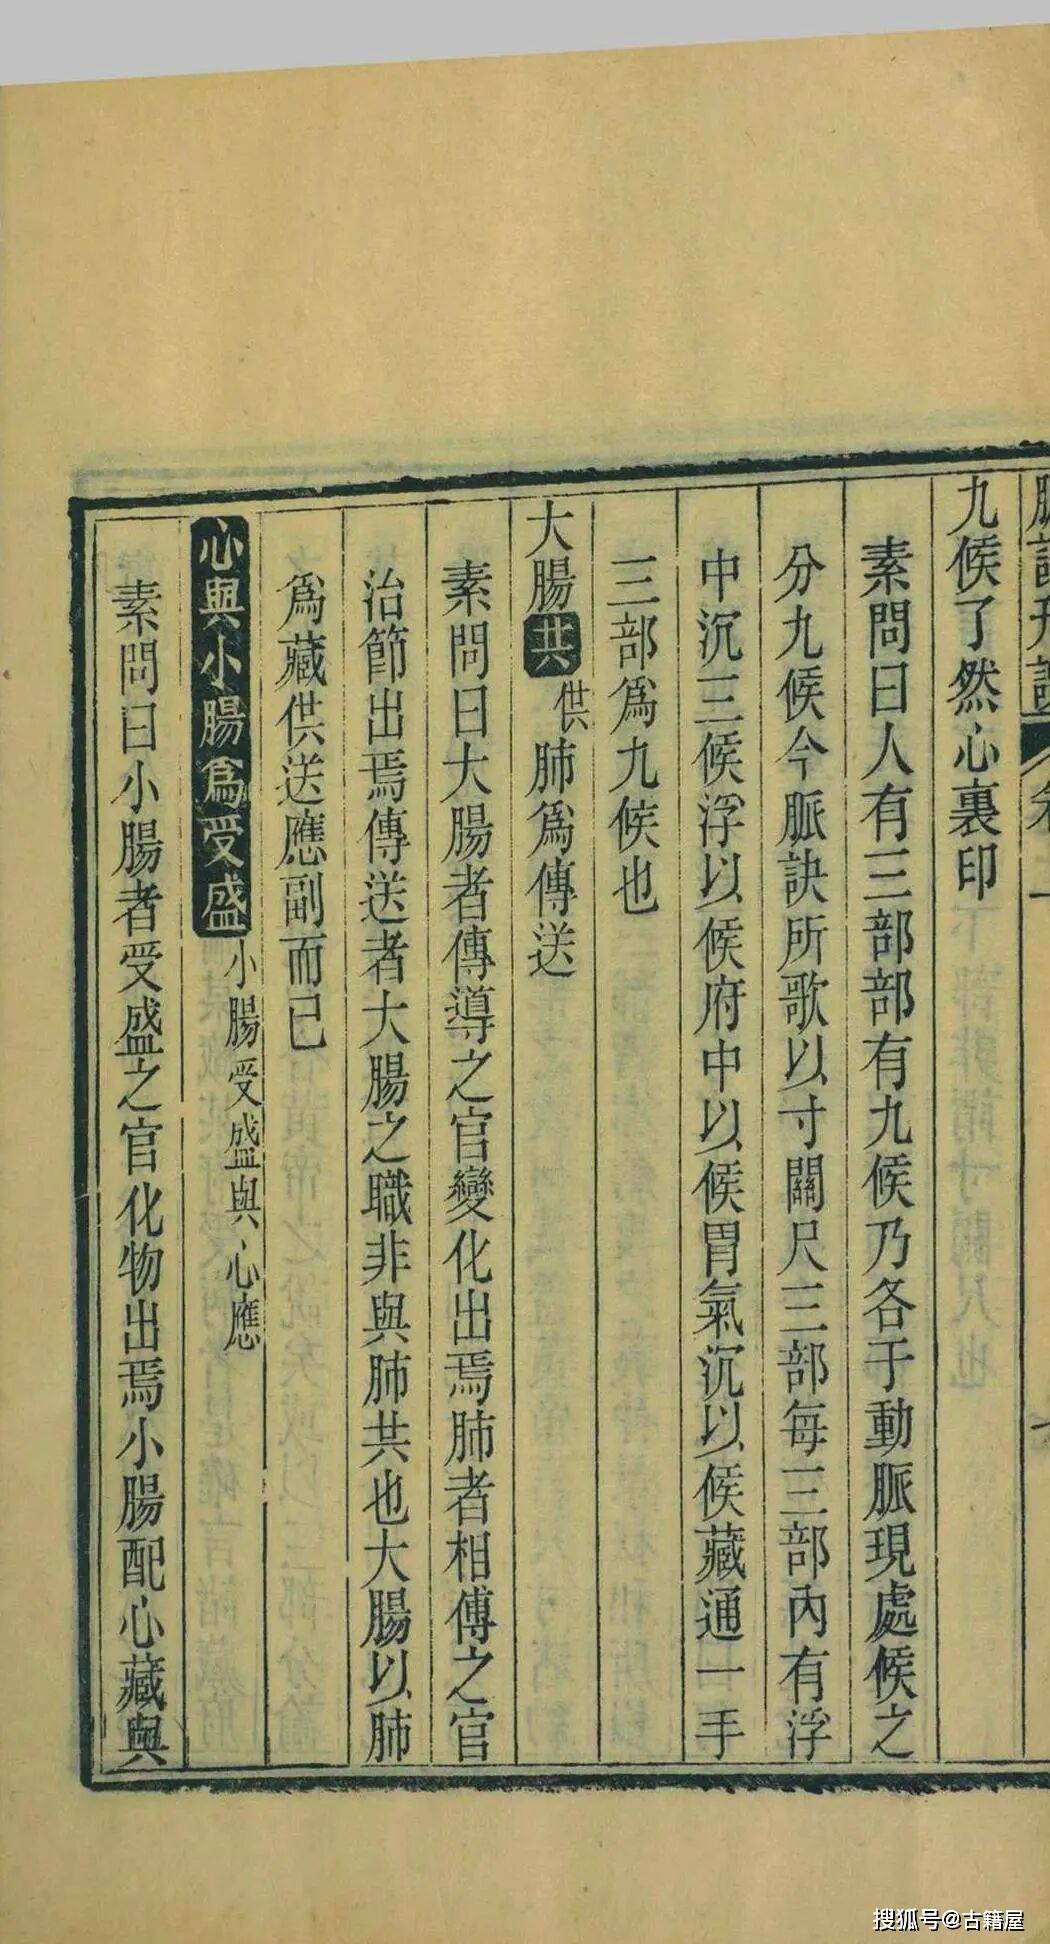 九候了然心裏印
素問曰人有三部部有九候乃各于動脈現處候之
分九候今脈訣所歌以寸關尺三部每三部內有浮
中沉三候浮以候府中以候胃氣沉以候藏通一手
三部爲九候也
大腸共供肺爲傳送
素問曰大腸者傳導之官變化出焉肺者相傅之官
治節出焉傳送者大腸之職非與肺共也大腸以肺
爲藏供送應副而已
心與小腸爲受盛小腸受盛與心應
素問曰小腸者受盛之官化物出焉小腸配心藏與
搜狐号@古籍屋